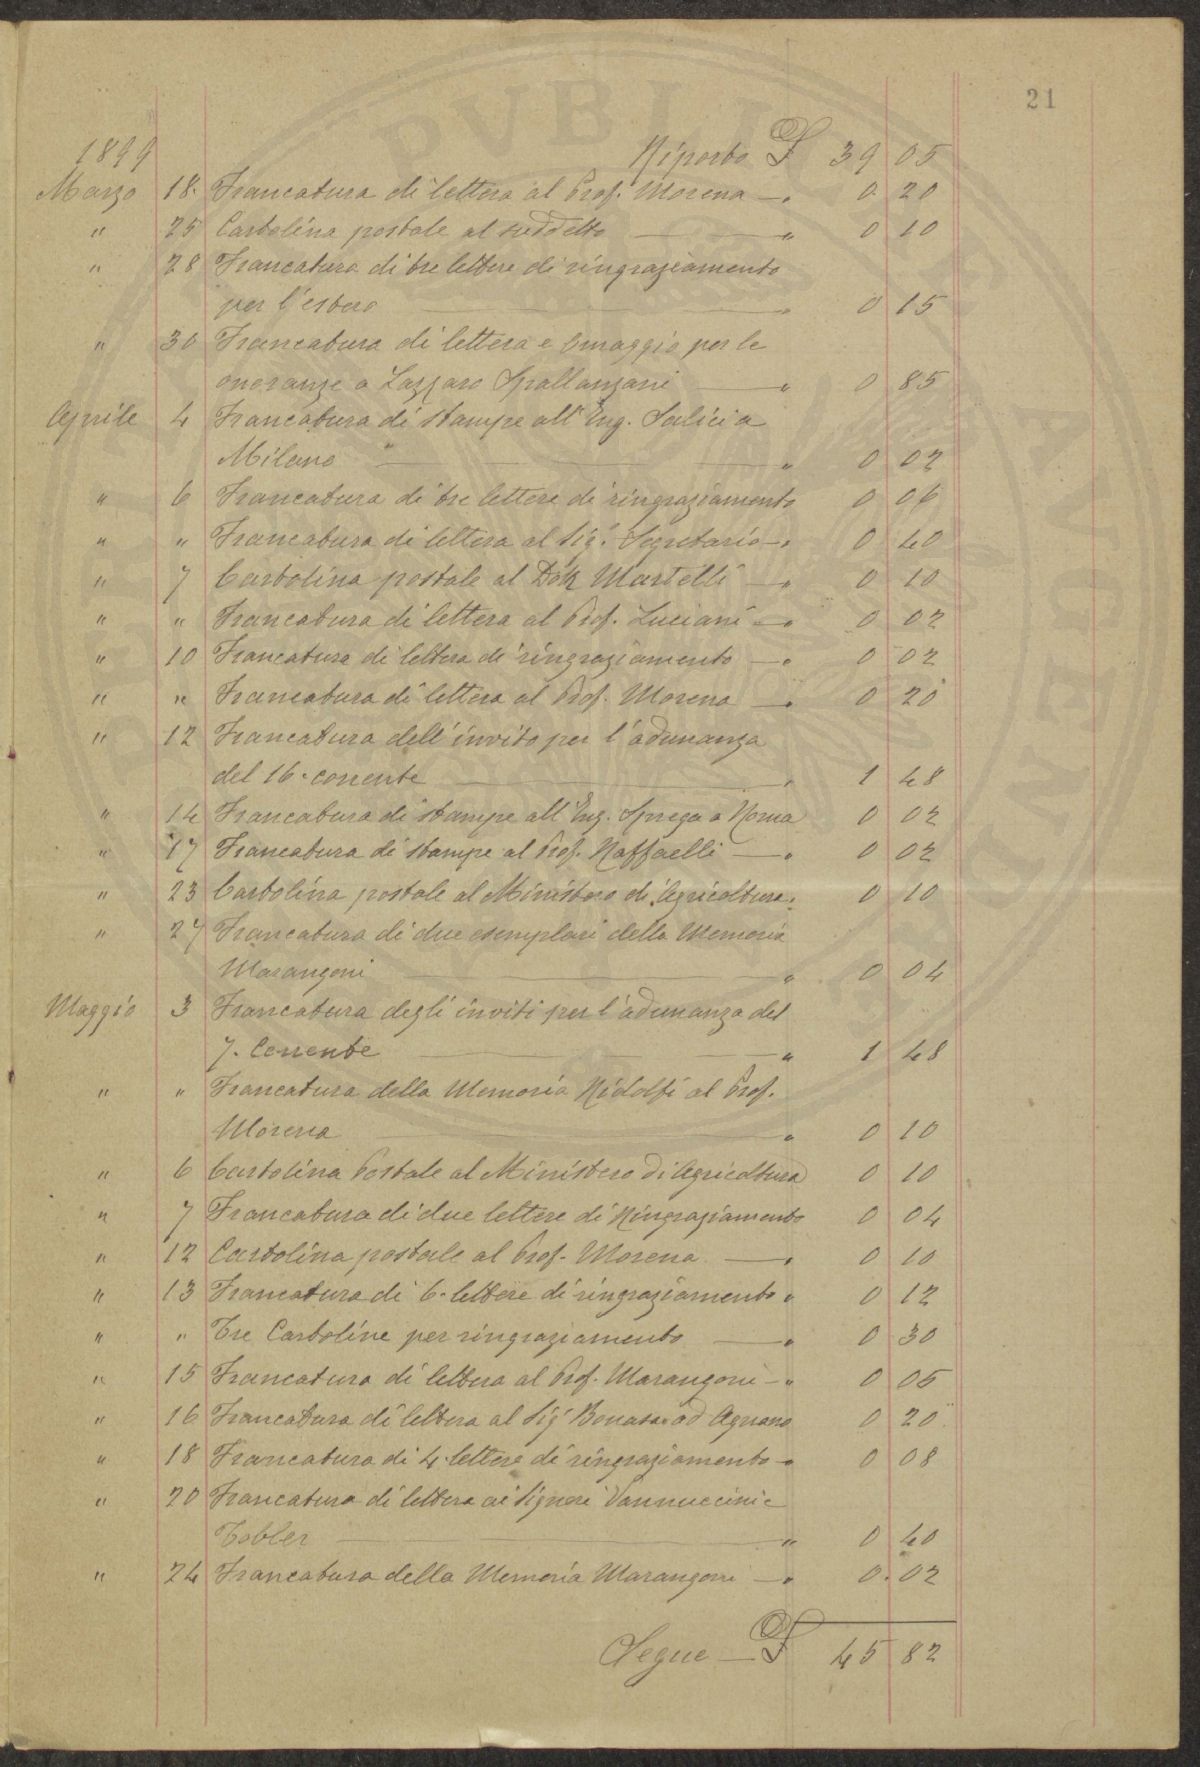 21
1899 Riporto £ 39 05
Marzo 18. Francatura di lettera al Prof. Morena — " 0 20
" 25 Cartolina postale al suddetto — " 0 10
" 28 Francatura di tre lettere di ringraziamento
per l'estero — " 0 15
" 30 Francatura di lettera e Omaggio per le
onoranze a Lazzaro Spallanzani — " 0 85
Aprile 4 Francatura di stampe all'Ing. Salicia
Milano — " 0 02
" 6 Francatura di tre lettere di ringraziamento 0 06
" " Francatura di lettera al Sig. Segretario — " 0 40
" 7 Cartolina postale al Martelli — " 0 10
" " Francatura di lettera al Prof. Luciani — " 0 02
" 10 Francatura di lettera di ringraziamento — " 0 02
" " Francatura di lettera al Prof. Morena — " 0 20
" 12 Francatura dell'invito per l'adunanza
del 16. corrente — " 1 48
" 14 Francatura di stampe all'Ing. Sprega a Roma 0 02
" 17 Francatura di stampe al Prof. Raffaelli — " 0 02
" 23 Cartolina postale al Ministero di Agricoltura " 0 10
" 27 Francatura di due esemplari della Memoria
Marangoni — " 0 04
Maggio 3 Francatura degli inviti per l'adunanza del
7. Corrente — " 1 48
" " Francatura della Memoria Ridolfi al Prof.
Morena — " 0 10
" 6 Cartolina Postale al Ministero di Agricoltura 0 10
" 7 Francatura di due lettere di Ringraziamento 0 04
" 12 Cartolina postale al Prof. Morena — " 0 10
" 13 Francatura di 6. lettere di ringraziamento " 0 12
" " Tre Cartoline per ringraziamento — " 0 30
" 15 Francatura di lettera al Prof. Marangoni — " 0 05
" 16 Francatura di lettera al Sig. ad Agnano 0 20
" 18 Francatura di 4. lettere di ringraziamento — " 0 08
" 20 Francatura di lettera ai Signori Vannuccini e
Tobler — " 0 40
" 24 Francatura della Memoria Marangoni — " 0. 02
Segue — £ 45 82